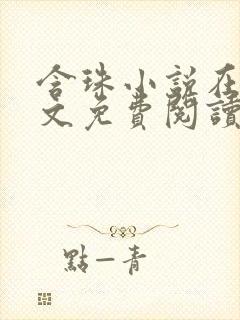 含珠小說在
文免費閱讀
點一青